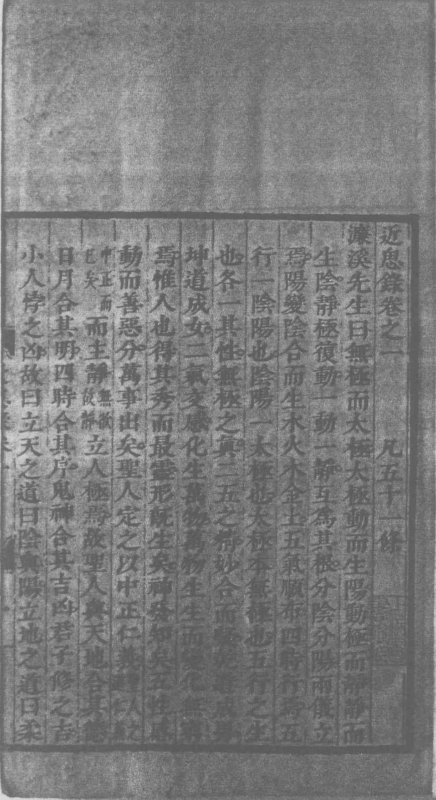 近思錄卷之一　凡五十一條
濂溪先生曰無極而太極太極動而生陽動極而靜靜而
生陰靜極復動一動一靜互為其根分陰分陽兩儀立
焉陽變陰合而生水火木金土五氣順布四時行焉五
行一陰陽也陰陽一太極也太極本無極也五行之生
也各一其性無極之真二五之精妙合而凝乾道成男
坤道成女二氣交感化生萬物萬物生生而變化無窮
焉惟人也得其秀而最靈形既生矣神發知矣五性感
動而善惡分萬事出矣聖人定之以中正仁義
中正而已矣而主靜無欲故靜立人極焉故聖人與天地合其德
日月合其明四時合其序鬼神合其吉凶君子修之吉
小人悖之凶故曰立天之道曰陰與陽立地之道曰柔